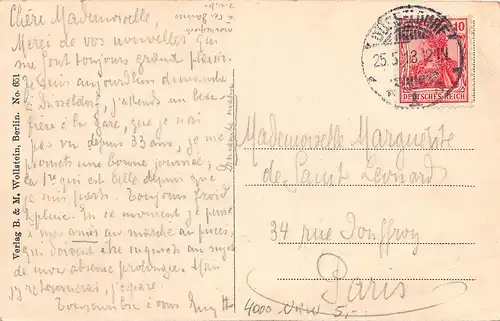 Chère Mademoiselle,
Merci de vos nouvelles qui
me font toujours grand plaisir.
Je suis aujourd'hui dimanche
à Düsseldorf, j'attends un beau-
frère à la gare, que je n'ai
pas vu depuis 33 ans, je me
promets une bonne journée,
la 1re qui est belle depuis que
je suis parti. Toujours froid
& pluie. En ce moment je pense
à mes amies au marché au puces,
qui doivent être inquiets au sujet
de mon absence prolongée. Mais
j'y retournerai, j'espère.
Toujours à vous
Verlag B. & M. Wollstein, Berlin. No. 651
DÜSSELDORF
25.5.13. 12-1N.
10
DEUTSCHES REICH
Mademoiselle Marguerite
de Saint Léonard
34 rue Jouffroy
Paris
4000 NRW 5,-